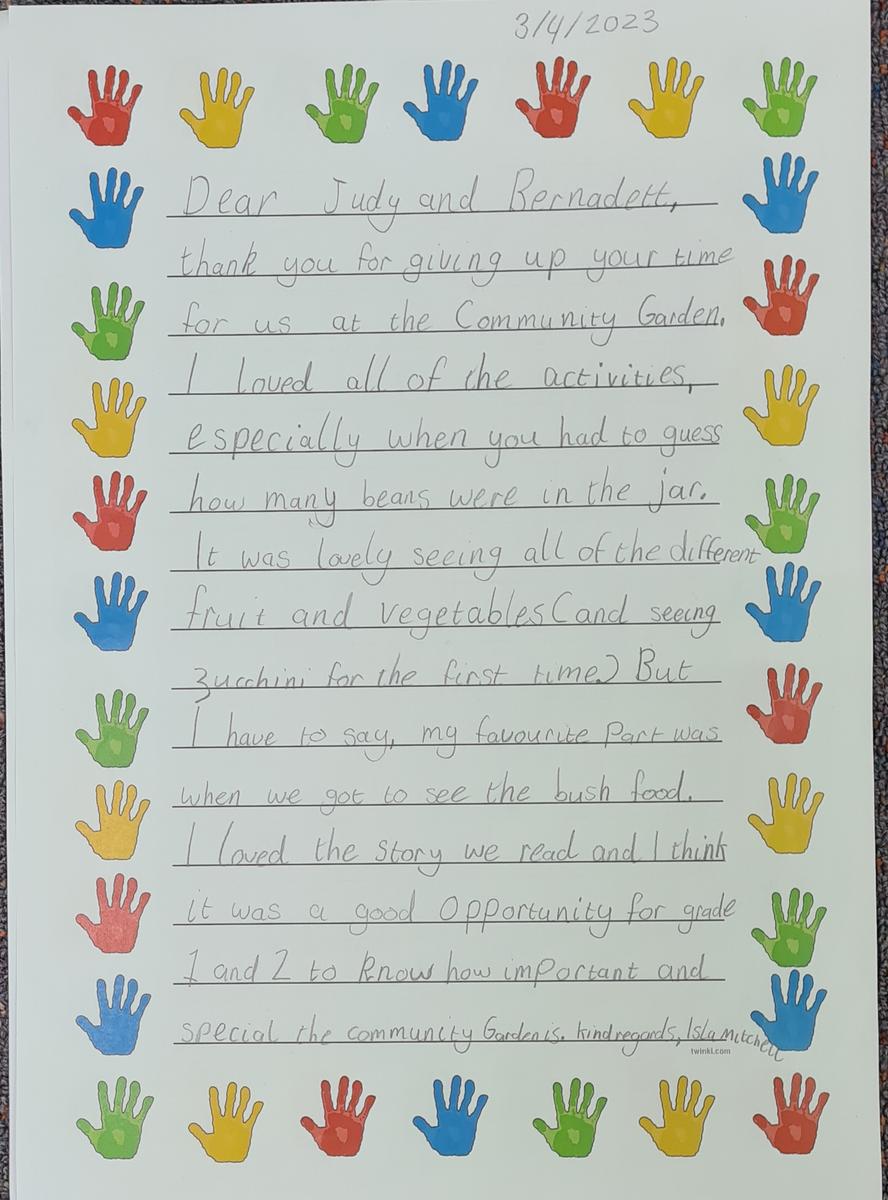 3/4/2023
Dear Judy and Bernadett,
thank you for giving up your time
for us at the Community Garden.
I loved all of the activities,
especially when you had to guess
how many beans were in the jar.
It was lovely seeing all of the different
fruit and vegetables (and seeing
zucchini for the first time) But
I have to say, my favourite Part was
when we got to see the bush food.
I loved the story we read and I think
it was a good opportunity for grade
1 and 2 to know how important and
special the community Garden is. kind regards, Isla Mitchell
twinkl.com